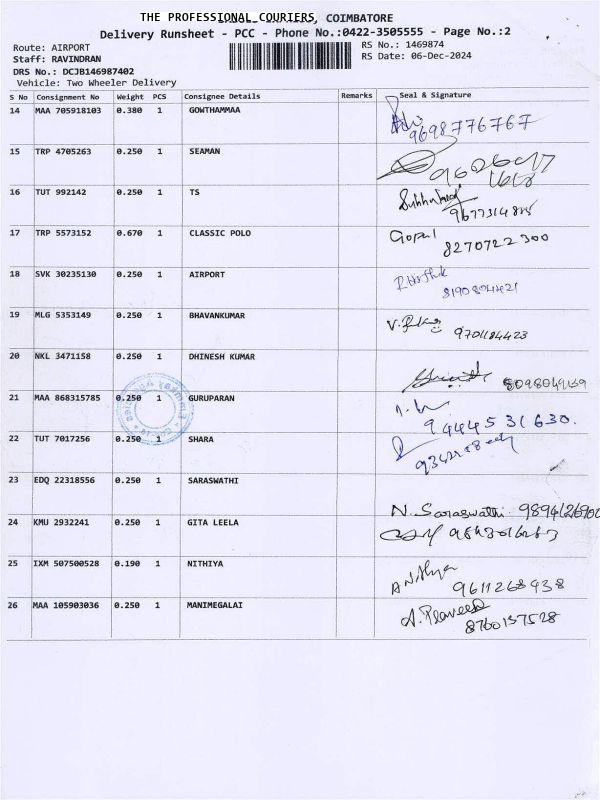 THE PROFESSIONAL COURIERS, COIMBATORE
Delivery Runsheet - PCC - Phone No.:0422-3505555 - Page No.:2
Route: AIRPORT RS No.: 1469874
Staff: RAVINDRAN RS Date: 06-Dec-2024
DRS No.: DCJB146987402
Vehicle: Two Wheeler Delivery
S No Consignment No Weight PCS Consignee Details Remarks Seal & Signature
14 MAA 705918103 0.380 1 GOWTHAMMAA
9698776767
15 TRP 4705263 0.250 1 SEAMAN
16 TUT 992142 0.250 1 TS
17 TRP 5573152 0.670 1 CLASSIC POLO Gopal
8270722300
18 SVK 30235130 0.250 1 AIRPORT
19 MLG 5353149 0.250 1 BHAVANKUMAR
9701184423
20 NKL 3471158 0.250 1 DHINESH KUMAR
21 MAA 868315785 0.250 1 GURUPARAN
9444531630.
22 TUT 7017256 0.250 1 SHARA
23 EDQ 22318556 0.250 1 SARASWATHI
N. Saraswathi
24 KMU 2932241 0.250 1 GITA LEELA
25 IXM 507500528 0.190 1 NITHIYA
A Nithya
9611268938
26 MAA 105903036 0.250 1 MANIMEGALAI
A. Praveen
8760157528